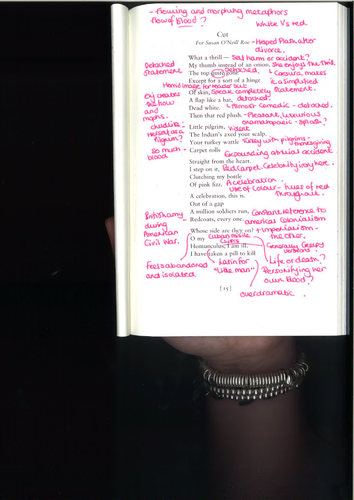 - Flowing and morphing metaphors
flow of blood?
White vs red.
Cut
For Susan O'Neill Roe
- Helped Plath after
divorce.
What a thrill —
Sad harm or accident?
My thumb instead of an onion.
She enjoys the thrill
The top quite gone
Detached.
Caesura, makes
Except for a sort of a hinge
it a simplified
Detached
statement
Horrid image for reader but
Of skin,
Speak completely statement.
A flap like a hat,
detached.
Dead white.
Almost comedic - detached.
Then that red plush.
- Pleasant, luxurious
onomatopoeic - splash?
Little pilgrim,
Violent
The Indian's axed your scalp.
Your turkey wattle
Turkey with pilgrims -
thanksgiving
Carpet rolls
Expounding actual accident
so much
blood
Straight from the heart.
I step on it,
Red carpet. Celebrity imagery here.
Clutching my bottle
Of pink fizz.
A celebration.
use of colour - hues of red
throughout.
A celebration, this is.
Out of a gap
A million soldiers run,
Constant reference to
Redcoats, every one.
american colonialism
British army
during
American
Civil War.
Whose side are they on?
+ Imperialism -
the other.
O my
Cuban missile
crisis
Homunculus, I am ill.
I have taken a pill to kill
Life or death?
Feels abandoned
and isolated
Latin for
"little man"
Personifying her
own blood?
[25]
overdramatic.